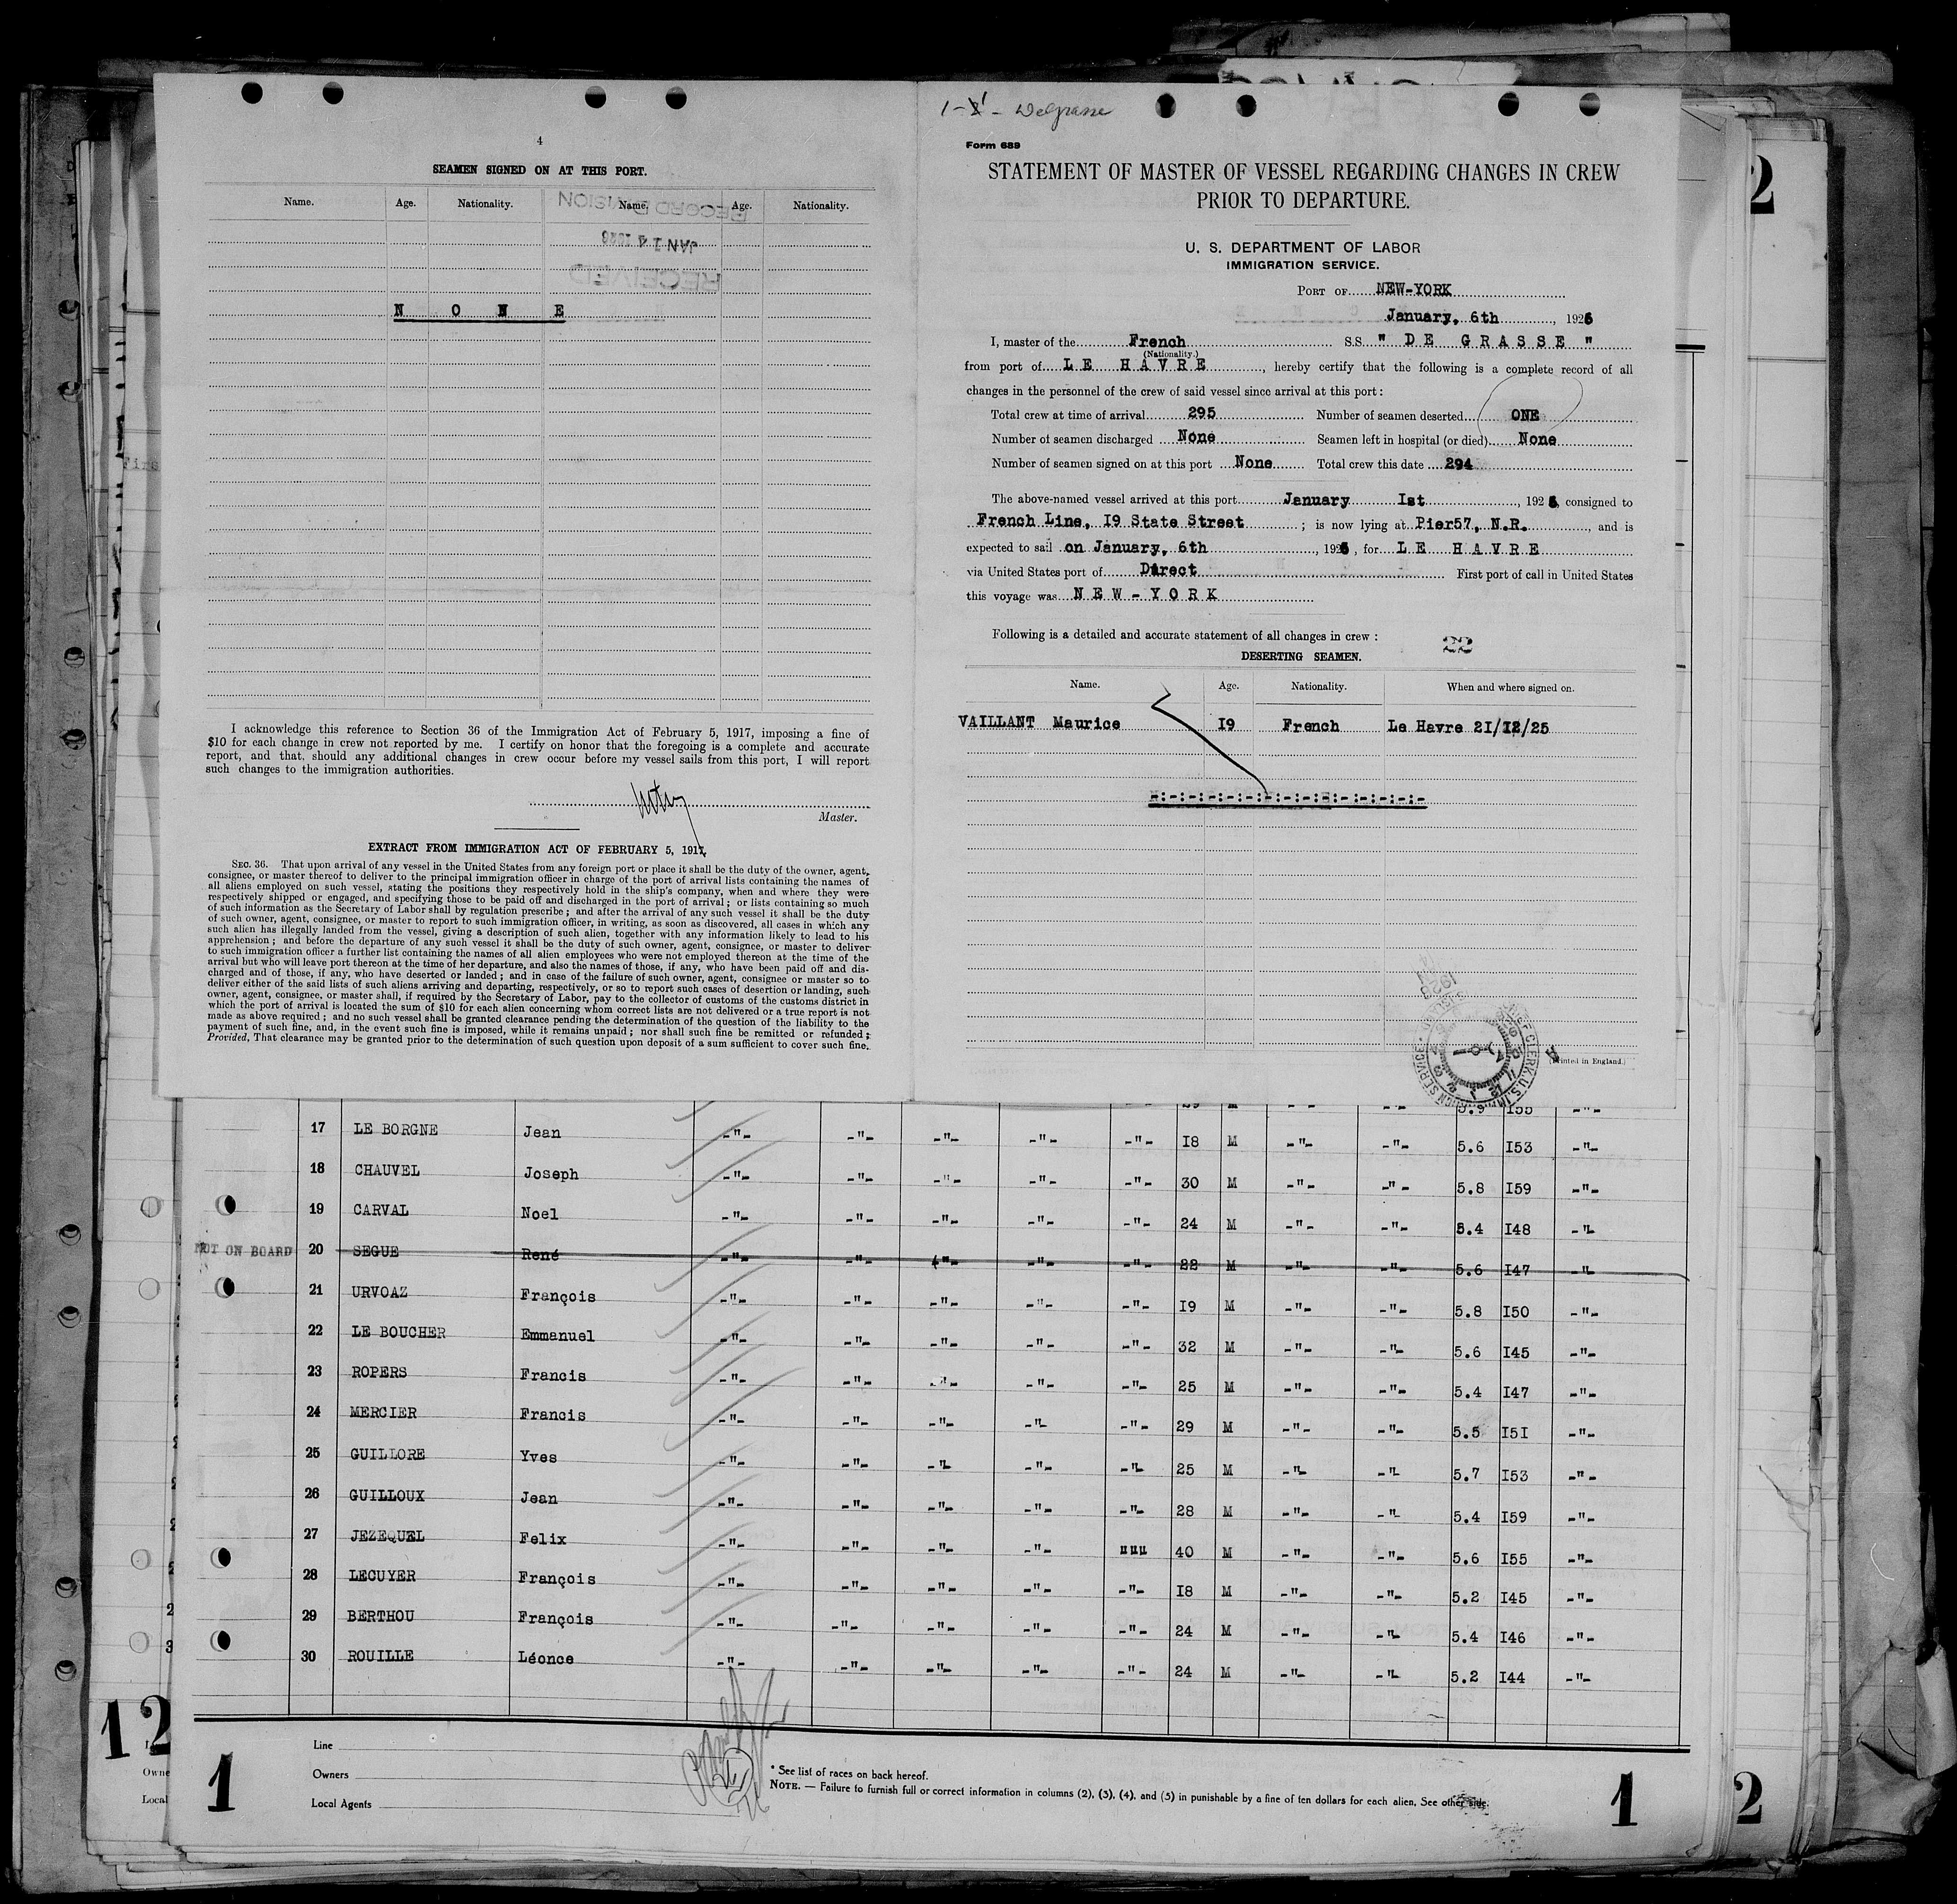 4
SEAMEN SIGNED ON AT THIS PORT.
Name. Age. Nationality. Name. Age. Nationality.
RECORD DIVISION
JAN 14 1926
RECEIVED
N O N E
I acknowledge this reference to Section 36 of the Immigration Act of February 5, 1917, imposing a fine of
$10 for each change in crew not reported by me. I certify on honor that the foregoing is a complete and accurate
report, and that, should any additional changes in crew occur before my vessel sails from this port, I will report
such changes to the immigration authorities.
Master.
EXTRACT FROM IMMIGRATION ACT OF FEBRUARY 5, 1917.
SEC. 36. That upon arrival of any vessel in the United States from any foreign port or place it shall be the duty of the owner, agent,
consignee, or master thereof to deliver to the principal immigration officer in charge of the port of arrival lists containing the names of
all aliens employed on such vessel, stating the positions they respectively hold in the ship's company, when and where they were
respectively shipped or engaged, and specifying those to be paid off and discharged in the port of arrival; or lists containing so much
of such information as the Secretary of Labor shall by regulation prescribe; and after the arrival of any such vessel it shall be the duty
of such owner, agent, consignee, or master to report to such immigration officer, in writing, as soon as discovered, all cases in which any
such alien has illegally landed from the vessel, giving a description of such alien, together with any information likely to lead to his
apprehension; and before the departure of any such vessel it shall be the duty of such owner, agent, consignee, or master to deliver
to such immigration officer a further list containing the names of all alien employees who were not employed thereon at the time of the
arrival but who will leave port thereon at the time of her departure, and also the names of those, if any, who have been paid off and dis-
charged and of those, if any, who have deserted or landed; and in case of the failure of such owner, agent, consignee or master so to
deliver either of the said lists of such aliens arriving and departing, respectively, or so to report such cases of desertion or landing, such
owner, agent, consignee, or master shall, if required by the Secretary of Labor, pay to the collector of customs of the customs district in
which the port of arrival is located the sum of $10 for each alien concerning whom correct lists are not delivered or a true report is not
made as above required; and no such vessel shall be granted clearance pending the determination of the question of the liability to the
payment of such fine, and, in the event such fine is imposed, while it remains unpaid; nor shall such fine be remitted or refunded;
Provided, That clearance may be granted prior to the determination of such question upon deposit of a sum sufficient to cover such fine.
Degrasse
Form 689
STATEMENT OF MASTER OF VESSEL REGARDING CHANGES IN CREW
PRIOR TO DEPARTURE.
U. S. DEPARTMENT OF LABOR
IMMIGRATION SERVICE.
PORT OF NEW-YORK
January, 6th, 1926
I, master of the French SS. " DE GRASSE "
(Nationality.)
from port of LE HAVRE, hereby certify that the following is a complete record of all
changes in the personnel of the crew of said vessel since arrival at this port:
Total crew at time of arrival 295 Number of seamen deserted ONE
Number of seamen discharged None Seamen left in hospital (or died) None
Number of seamen signed on at this port None Total crew this date 294
The above-named vessel arrived at this port January Ist, 1926, consigned to
French Line, I9 State Street ; is now lying at Pier57, N.R., and is
expected to sail on January, 6th, 1926, for LE HAVRE
via United States port of Direct First port of call in United States
this voyage was NEW-YORK
Following is a detailed and accurate statement of all changes in crew:
22
DESERTING SEAMEN.
Name. Age. Nationality. When and where signed on.
VAILLANT Maurice I9 French Le Havre 2I/I2/25
-:-:-:-:-:-:-:-:-:-:-:-:-:-:-
(Printed in England.)
29 M 5.9 I55 -"-
17 LE BORGNE Jean -"- -"- -"- -"- -"- I8 M -"- -"- 5.6 I53 -"-
18 CHAUVEL Joseph -"- -"- -"- -"- -"- 30 M -"- -"- 5.8 I59 -"-
19 CARVAL Noel -"- -"- -"- -"- -"- 24 M -"- -"- 5.4 I48 -"-
NOT ON BOARD 20 SEGUE René -"- -"- -"- -"- -"- 22 M -"- -"- 5.6 I47 -"-
21 URVOAZ François -"- -"- -"- -"- -"- I9 M -"- -"- 5.8 I50 -"-
22 LE BOUCHER Emmanuel -"- -"- -"- -"- -"- 32 M -"- -"- 5.6 I45 -"-
23 ROPERS Francis -"- -"- -"- -"- -"- 25 M -"- -"- 5.4 I47 -"-
24 MERCIER Francis -"- -"- -"- -"- -"- 29 M -"- -"- 5.5 I5I -"-
25 GUILLORE Yves -"- -"- -"- -"- -"- 25 M -"- -"- 5.7 I53 -"-
26 GUILLOUX Jean -"- -"- -"- -"- -"- 28 M -"- -"- 5.4 I59 -"-
27 JEZEQUEL Felix -"- -"- -"- -"- """ 40 M -"- -"- 5.6 I55 -"-
28 LECUYER François -"- -"- -"- -"- -"- I8 M -"- -"- 5.2 I45 -"-
29 BERTHOU François -"- -"- -"- -"- -"- 24 M -"- -"- 5.4 I46 -"-
30 ROUILLE Léonce -"- -"- -"- -"- -"- 24 M -"- -"- 5.2 I44 -"-
Line
Owners
Local Agents
* See list of races on back hereof.
NOTE. — Failure to furnish full or correct information in columns (2), (3), (4), and (5) in punishable by a fine of ten dollars for each alien, See other side.
1
1
12
2
2